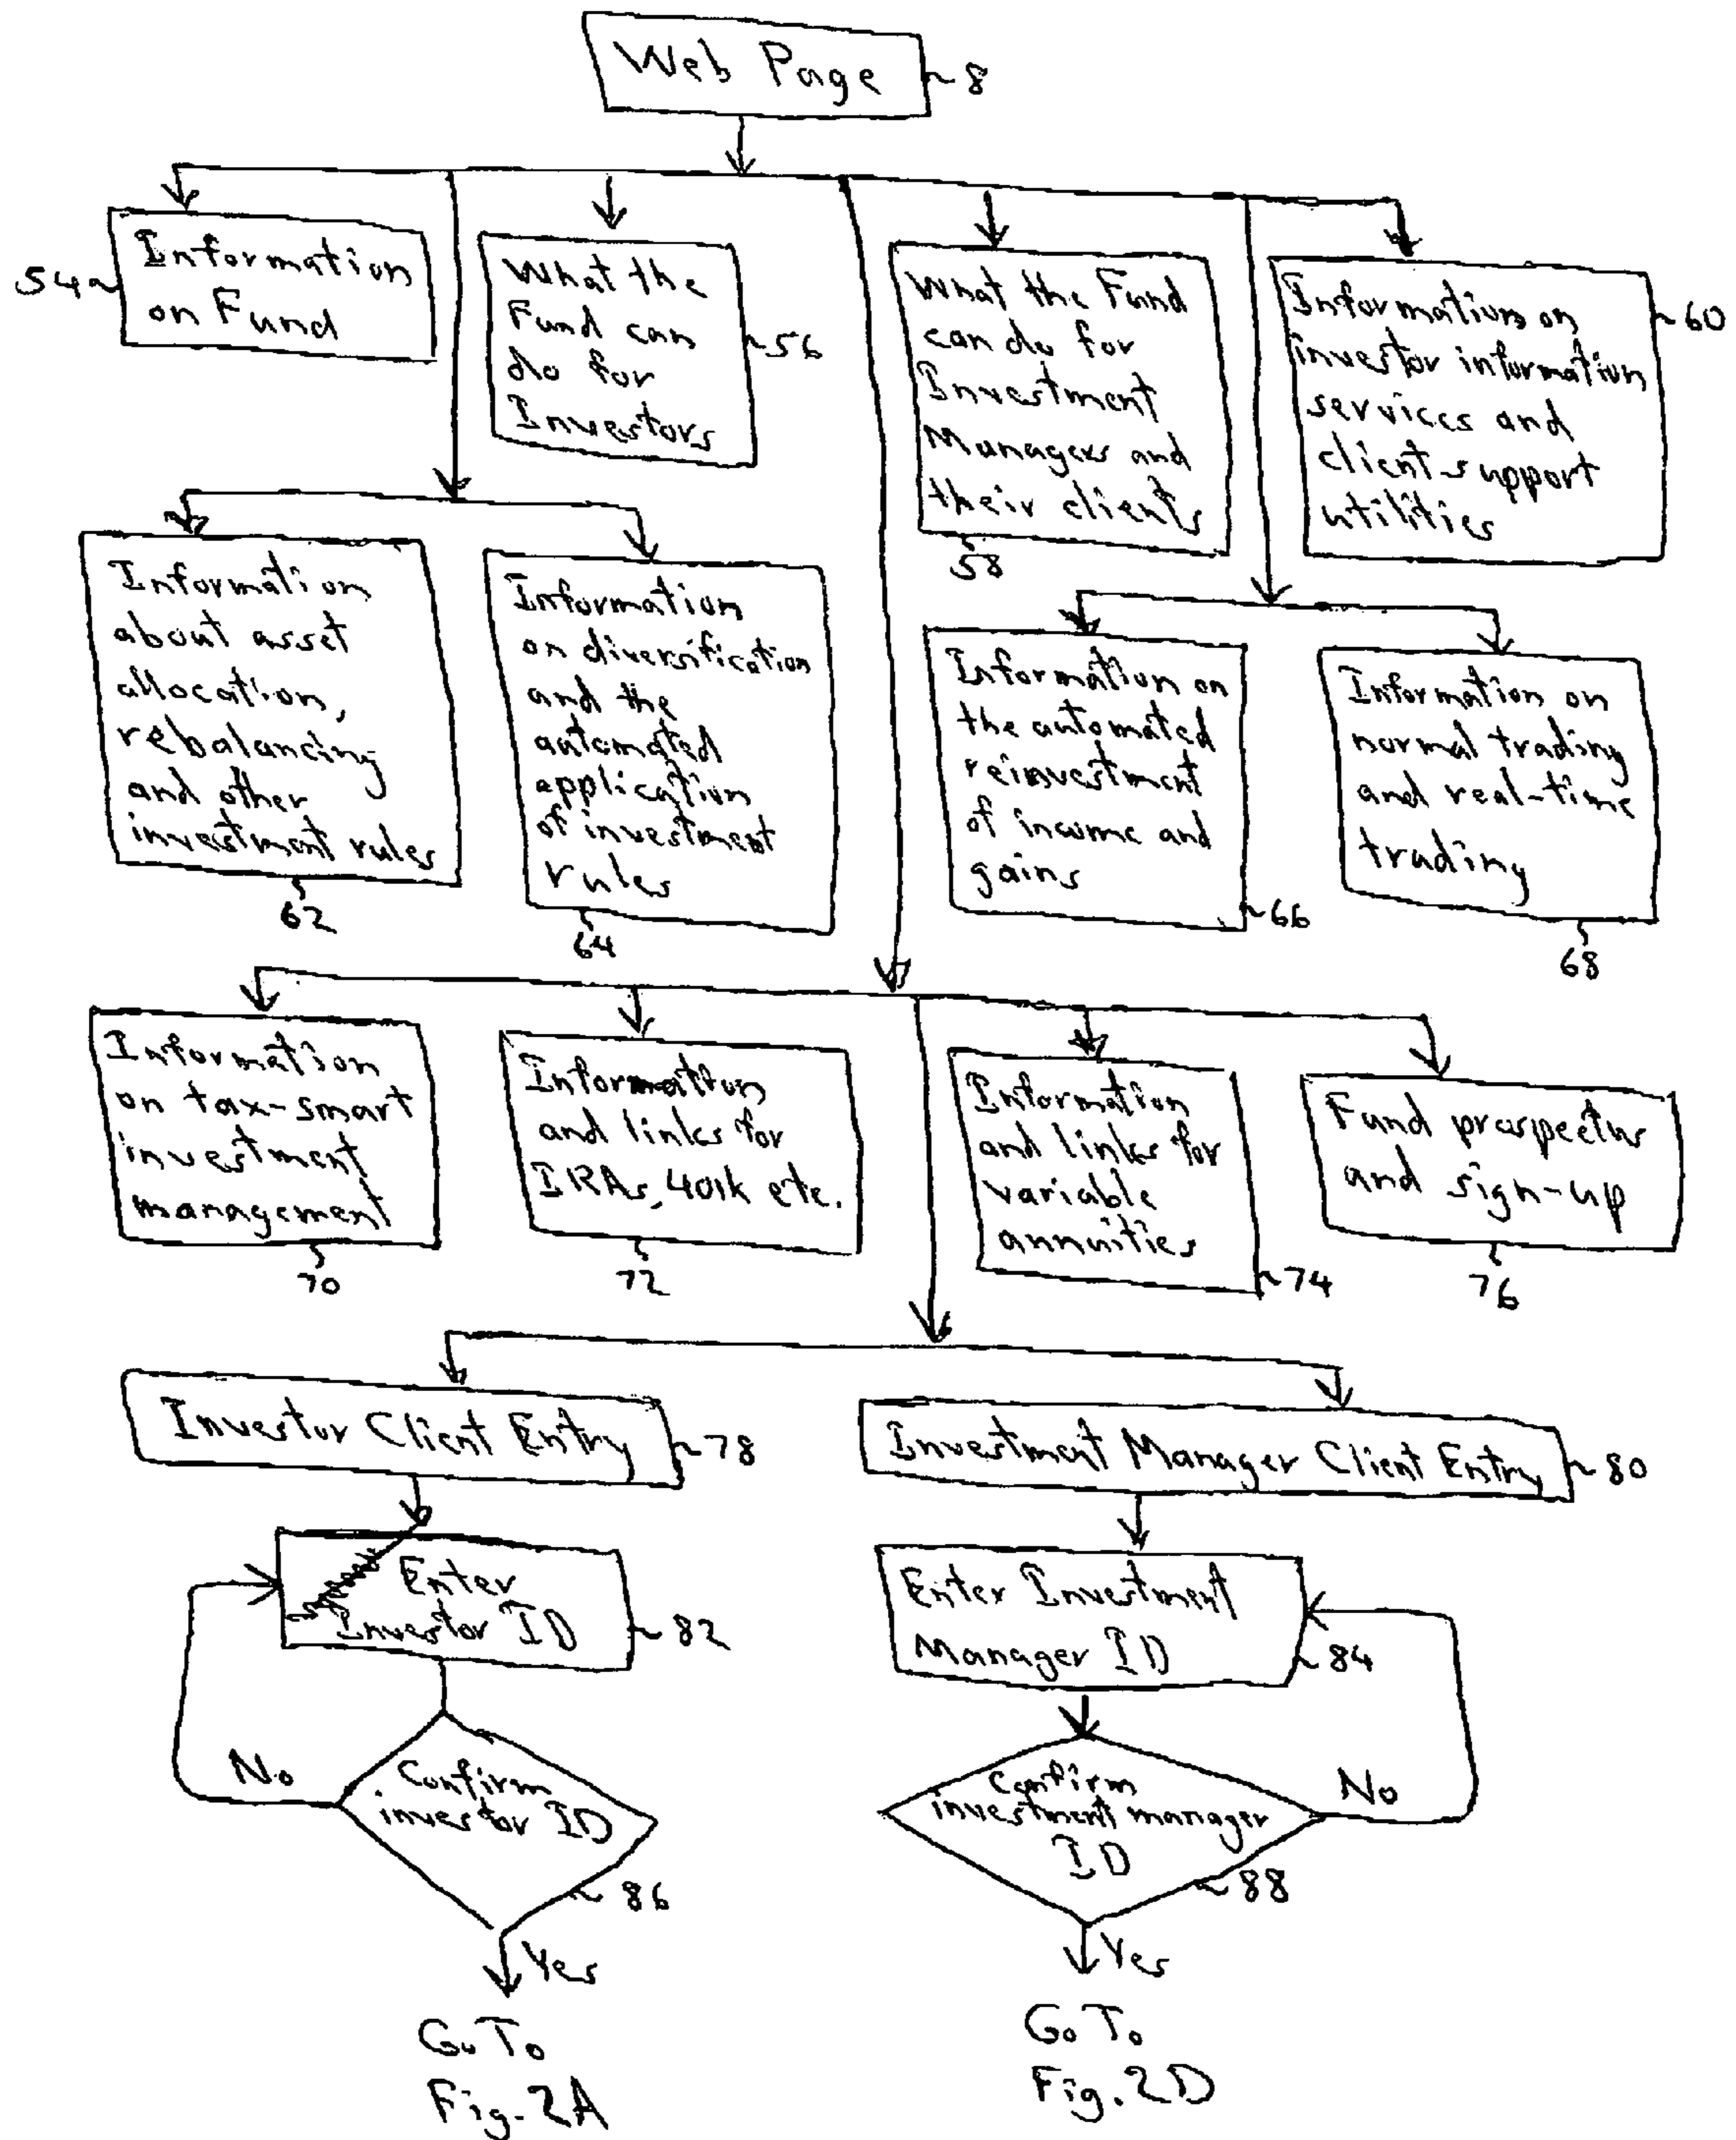 Web Page
8
Information
on Fund
54
What the
Fund can
do for
Investors
56
What the Fund
can do for
Investment
Managers and
their clients
58
Information on
investor information
services and
client-support
utilities
60
Information
about asset
allocation,
rebalancing
and other
investment rules
62
Information
on diversification
and the
automated
application
of investment
rules
64
Information on
the automated
reinvestment
of income and
gains
66
Information on
normal trading
and real-time
trading
68
Information
on tax-smart
investment
management
70
Information
and links for
IRAs, 401k etc.
72
Information
and links for
variable
annuities
74
Fund prospectus
and sign-up
76
Investor Client Entry
78
Investment Manager Client Entry
80
Enter
Investor ID
82
Enter Investment
Manager ID
84
No
Confirm
investor ID
86
Confirm
investment manager
ID
88
No
Yes
Yes
Go To
Fig. 2A
Go To
Fig. 2D